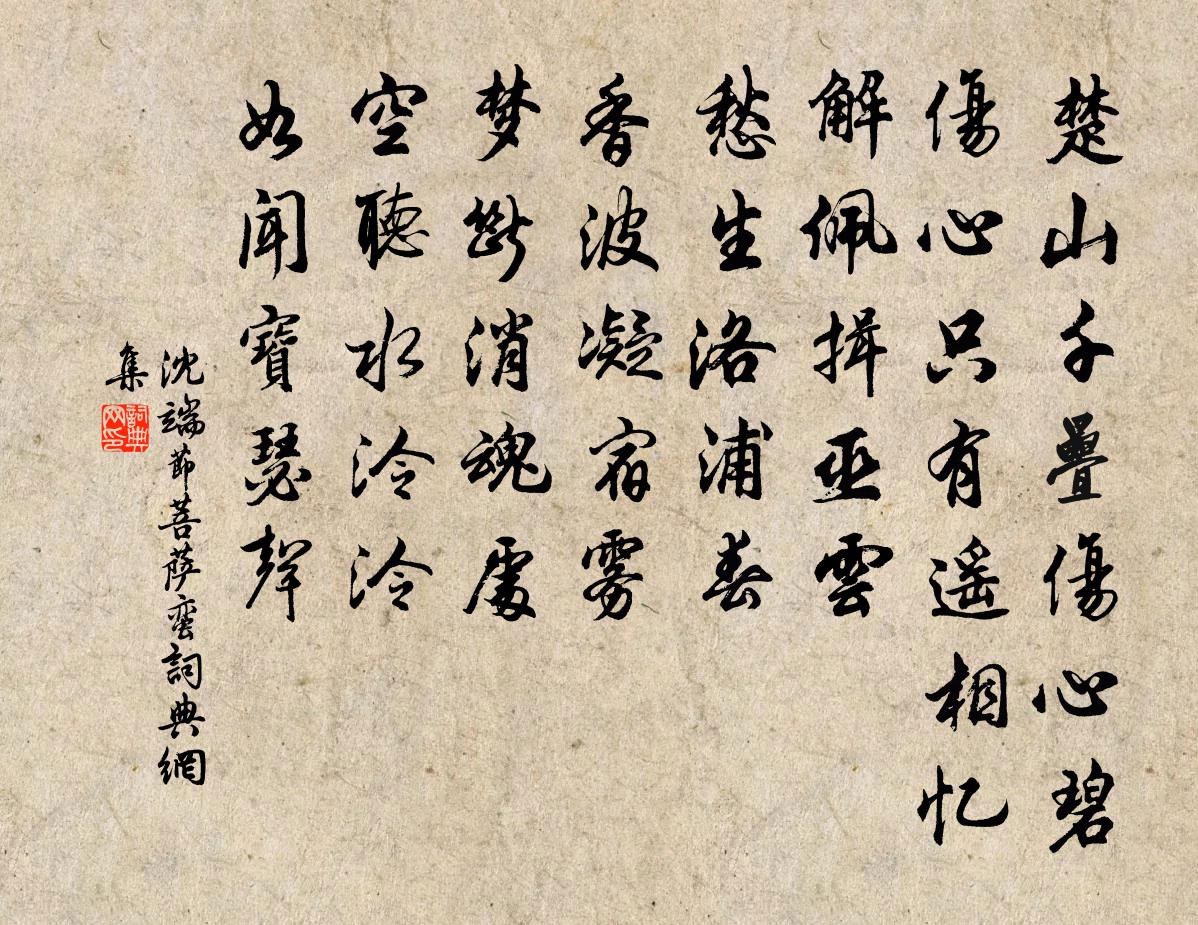 楚山千疊傷心碧
傷心只有遥相忆
解佩揖巫雲
愁生洛浦春
香波凝宿雾
梦斷消魂處
空聽水泠泠
如闻寶瑟聲
沈端節菩萨蛮詞典網
集
詞典网印